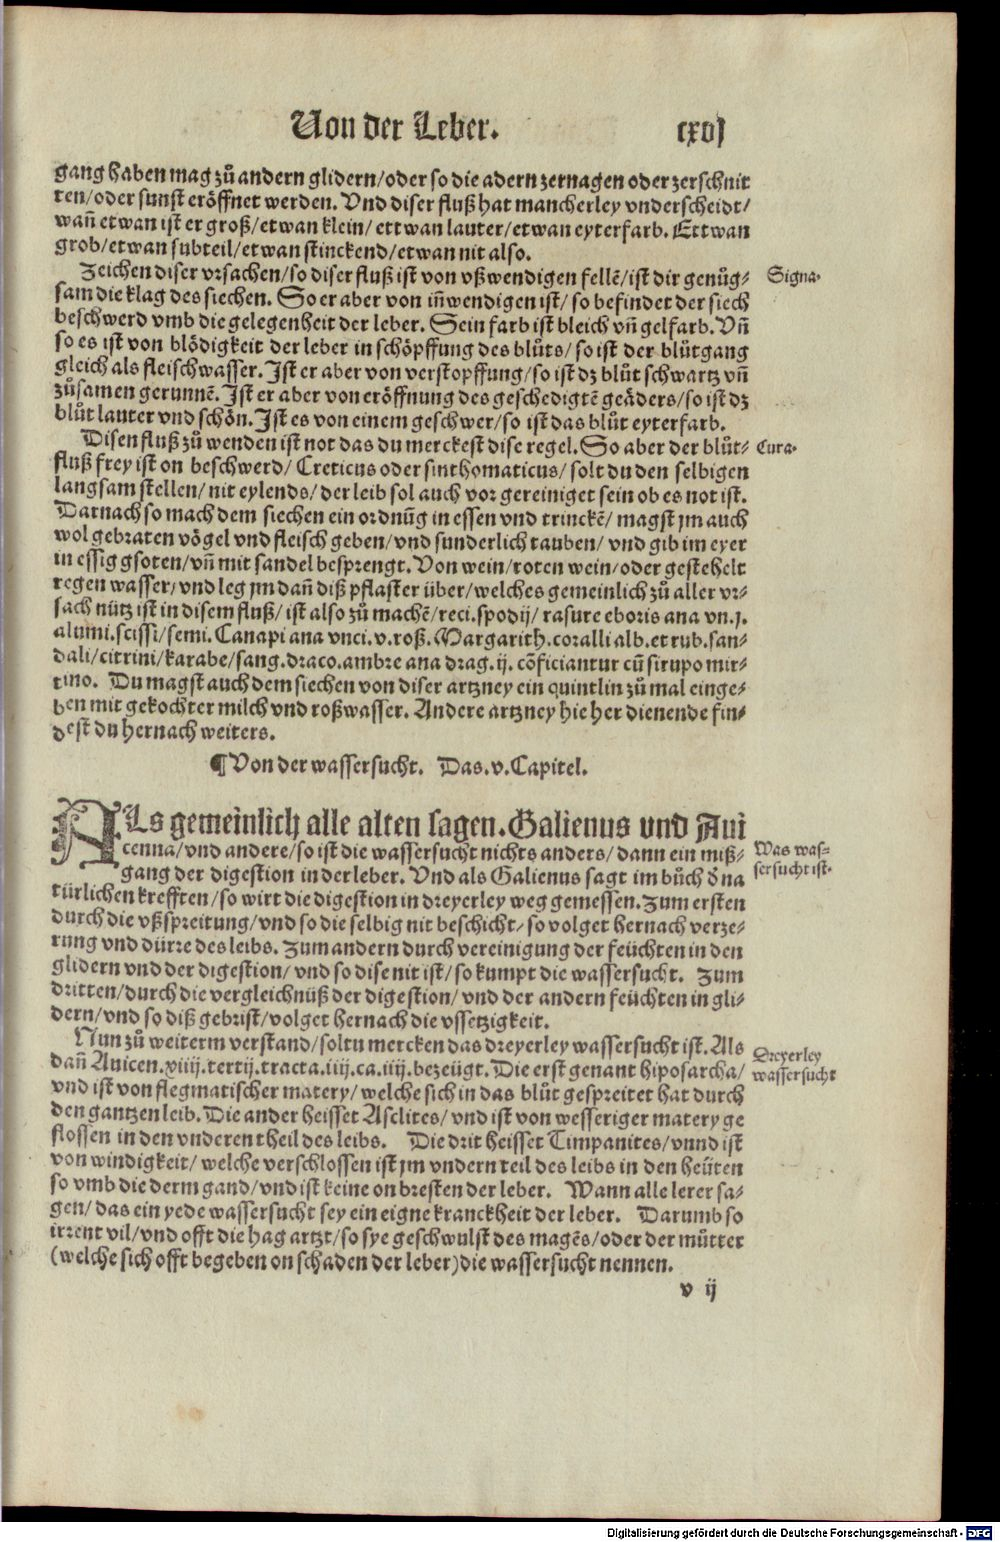 Von der Leber. cxvj
gang haben mag zů andern glidern/oder so die adern zernagen oder zerschnit
ten/oder sunst eröffnet werden. Vnd diser fluß hat mancherley vnderscheidt/
wañ etwan ist er groß/etwan klein/ ettwan lauter/etwan eyterfarb. Ettwan
grob/etwan subteil/etwan stinckend/etwan nit also.
Zeichen diser vrsachen/so diser fluß ist von vßwendigen fellē/ist dir genůg-
Signa.
sam die klag des siechen. So er aber von iñwendigen ist/ so befindet der siech
beschwerd vmb die gelegenheit der leber. Sein farb ist bleich vñ gelfarb. Vñ
so es ist von blödigkeit der leber in schöpffung des blůts/ so ist der blůtgang
gleich als fleischwasser. Ist er aber von verstopffung/so ist dz blůt schwartz vñ
zůsamen gerunnē. Ist er aber von eröffnung des geschedigtē geäders/so ist dz
blůt lauter vnd schön. Ist es von einem geschwer/so ist das blůt eyterfarb.
Disen fluß zů wenden ist not das du merckest dise regel. So aber der blůt-
Cura.
fluß frey ist on beschwerd/ Creticus oder sinthomaticus/ solt du den selbigen
langsam stellen/ nit eylends/ der leib sol auch vor gereiniget sein ob es not ist.
Darnach so mach dem siechen ein ordnũg in essen vnd trinckē/ magst jm auch
wol gebraten vögel vnd fleisch geben/vnd sunderlich tauben/ vnd gib im eyer
in essig gsoten/vñ mit sandel besprengt. Von wein/roten wein/oder gestehelt
regen wasser/vnd leg jm dañ diß pflaster über/welches gemeinlich zů aller vr-
sach nütz ist in disem fluß/ ist also zů machē/reci.spodij/ rasure eboris ana vn.j.
alumi.scissi/semi. Canapi ana vnci.v.roß. Margarith.coralli alb.et rub.san-
dali/citrini/karabe/sang.draco.ambre ana drag.ij. cōficiantur cũ sirupo mir-
tino. Du magst auch dem siechen von diser artzney ein quintlin zů mal einge-
ben mit gekochter milch vnd roßwasser. Andere artzney hie her dienende fin-
dest du hernach weiters.
¶Von der wassersucht. Das.v.Capitel.
ALs gemeinlich alle alten sagen.Galienus vnd Aui
cenna/vnd andere/so ist die wassersucht nichts anders/ dann ein miß-
Was was-
sersucht ist.
gang der digestion in der leber. Vnd als Galienus sagt im bůch d̕ na
türlichen krefften/so wirt die digestion in dreyerley weg gemessen. Zum ersten
durch die vßspreitung/vnd so die selbig nit beschicht/ so volget hernach verze-
rung vnd dürre des leibs. Zum andern durch vereinigung der feüchten in den
glidern vnd der digestion/ vnd so dise nit ist/ so kumpt die wassersucht. Zum
dritten/durch die vergleichnüß der digestion/ vnd der andern feüchten in gli-
dern/vnd so diß gebrist/volget hernach die vssetzigkeit.
Nun zů weiterm verstand/soltu mercken das dreyerley wassersucht ist. Als
dañ Auicen.xiiij.tertij.tracta.iiij.ca.iiij.bezeügt. Die erst genant hiposarcha/
Dreyerley
wassersucht
vnd ist von flegmatischer matery/ welche sich in das blůt gespreitet hat durch
den gantzen leib. Die ander heisset Asclites/ vnd ist von wesseriger matery ge
flossen in den vnderen theil des leibs. Die drit heisset Timpanites/vnnd ist
von windigkeit/ welche verschlossen ist jm vndern teil des leibs in den heüten
so vmb die derm gand/vnd ist keine on bresten der leber. Wann alle lerer sa-
gen/ das ein yede wassersucht sey ein eigne kranckheit der leber. Darumb so
irrent vil/vnd offt die hag artzt/so sye geschwulst des magēs/oder der můtter
(welche sich offt begeben on schaden der leber)die wassersucht nennen.
v ij
Digitalisierung gefördert durch die Deutsche Forschungsgemeinschaft - DFG